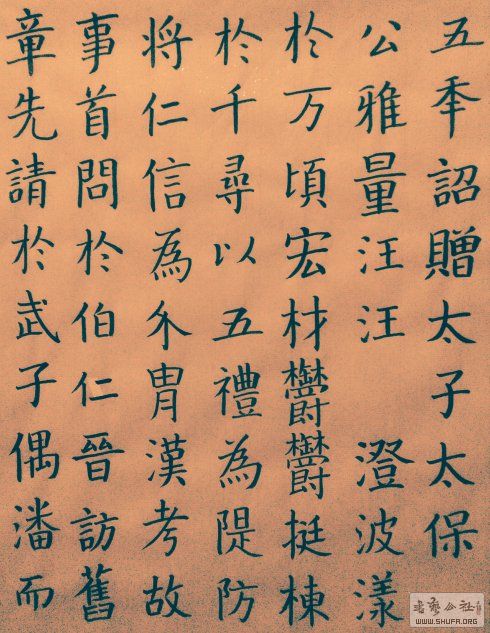 五年詔贈太子太保
公雅量汪汪 澄波漾
於万頃宏材欝欝挺棟
於千尋以五禮為隄防
将仁信為介冑漢考故
事首問於伯仁晉訪舊
章先請於武子偶潘而
WWW.SHUFA.ORG